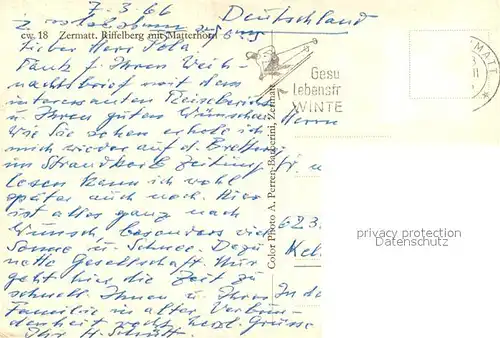 7.3.66
Deutschland
cw. 18 Zermatt. Riffelberg mit Matterhorn
Lieber Herr
Dank f. Ihren Weih-
nachtsbrief mit dem
interessanten Reisebericht
u. Ihren guten Wünschen.
Wie Sie sehen erhole ich
mich wieder auf d. Brettern
im Strandkorb Zeitung
lesen kann ich wohl
später auch noch. Hier
ist alles ganz nach
Wunsch besonders viel
Sonne u. Schnee. Dazu
nette Gesellschaft. Nur
geht hier die Zeit zu
schnell. Ihnen u. Ihrer
Familie in alter Verbun-
denheit recht herzl. Grüsse
Ihr H.
Gesu
Lebensfr
WINTE
Herrn
623
Kel
In d
Color Photo A. Perren-Barberini, Zermatt
privacy protection
Datenschutz